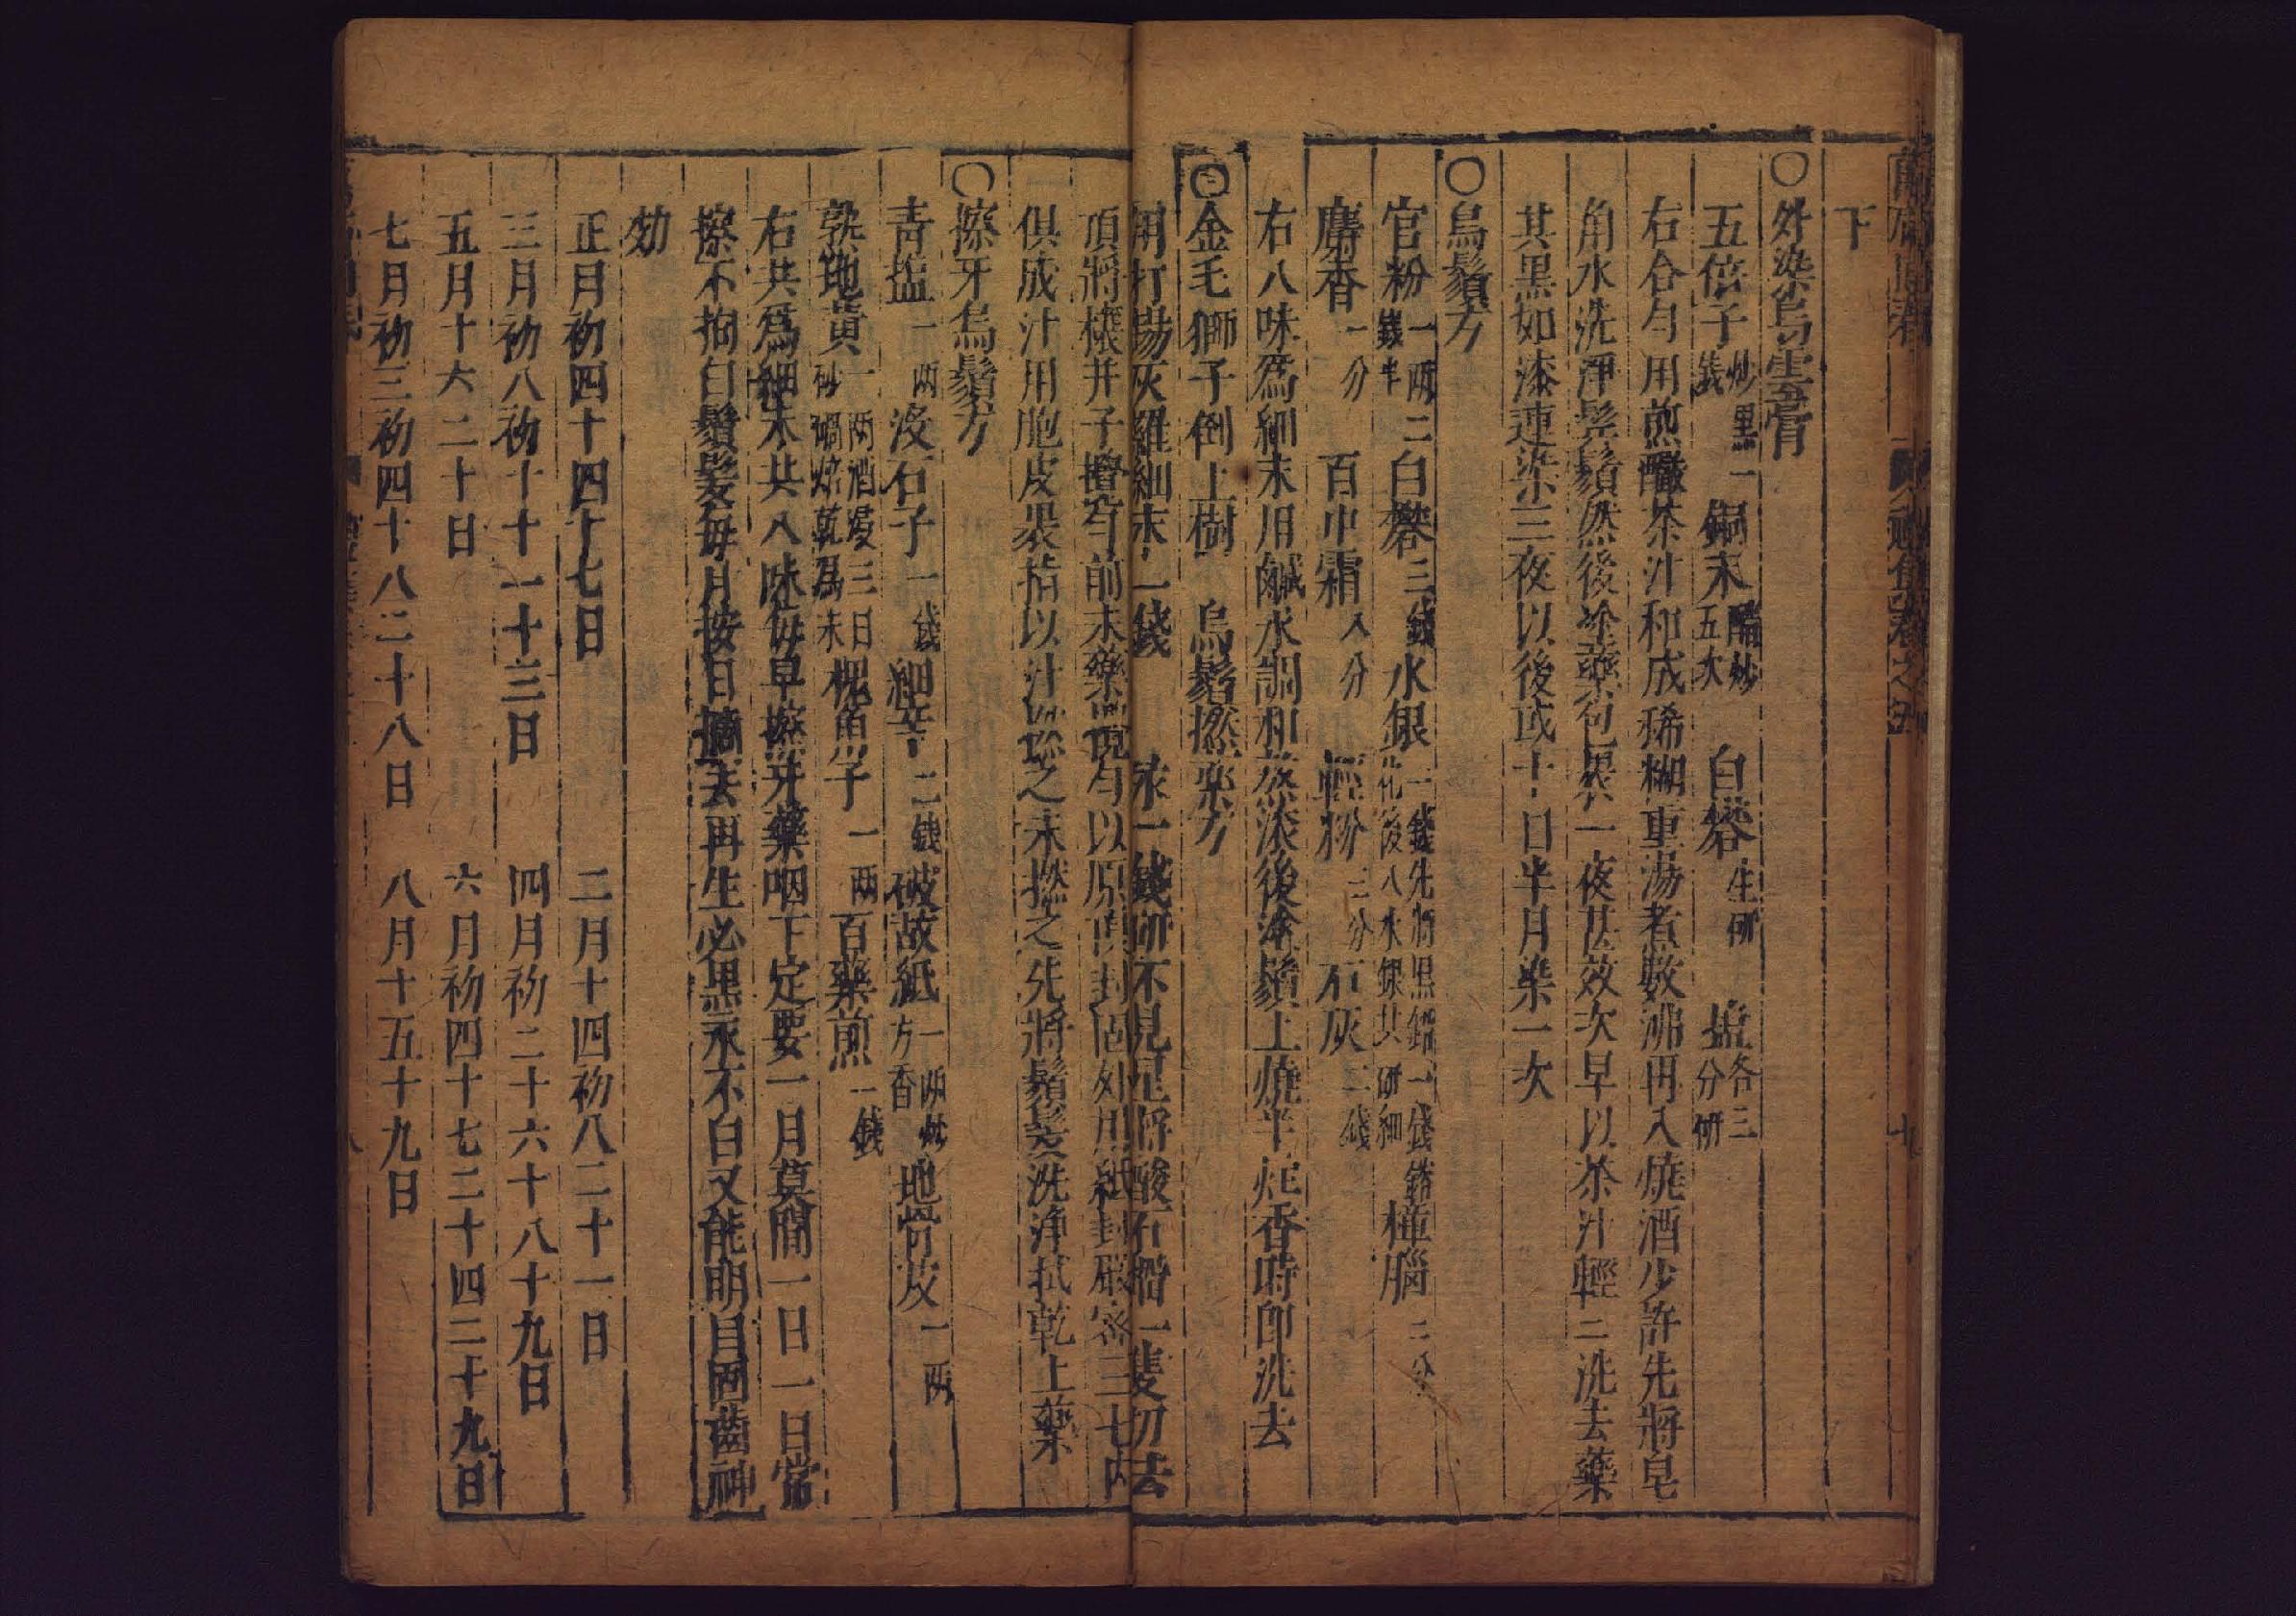 下
○外染烏雲膏
五倍子炒黑一錢 銅末醋炒五次 白礬生研 塩各三分研
右合勻用煎釅茶汁和成稀糊重湯煮數沸再入燒酒少許先將皂
角水洗淨鬓鬚然後塗藥包裹一夜甚效次早以茶汁輕二洗去藥
其黑如漆連染三夜以後或十日半月染一次
○烏鬚方
官粉一兩二錢半 白礬三錢 水銀一錢先將黑鉛一錢鎔化後入水銀共研細 樟腦三分
麝香一分 百中霜八分 輕粉三分 石灰二錢
右八味為細末用鹹水調和蒸滚後塗鬚上燒半炷香時即洗去
○金毛獅子倒上樹 烏鬚撚藥方
用打場灰羅細末一錢 汞一錢研不見星將酸石榴一隻切去
頂將榱并子攪勻前末藥 勻以原 封固外用紙封嚴密三七內
俱成汁用胞皮裹指以汁 之末撚之先將鬚髮洗淨拭乾上藥
○擦牙烏鬚方
青塩一兩 沒石子一錢 細辛二錢 破故紙一兩炒方香 地骨皮一兩
熟地黃一兩酒浸三日砂鍋焙乾為末 槐角子一兩 百藥煎一錢
右共為細末共八味每早擦牙藥咽下定要一月莫間一日一日常
擦不拘白鬚髮每月按日摘去再生必黑永不白又能明目固齒神
効
正月初四十四十七日 二月十四初八二十一日
三月初八初十十一十三日 四月初二十六十八十九日
五月十六二十日 六月初四十七二十四二十九日
七月初三初四十八二十八日 八月十五十九日